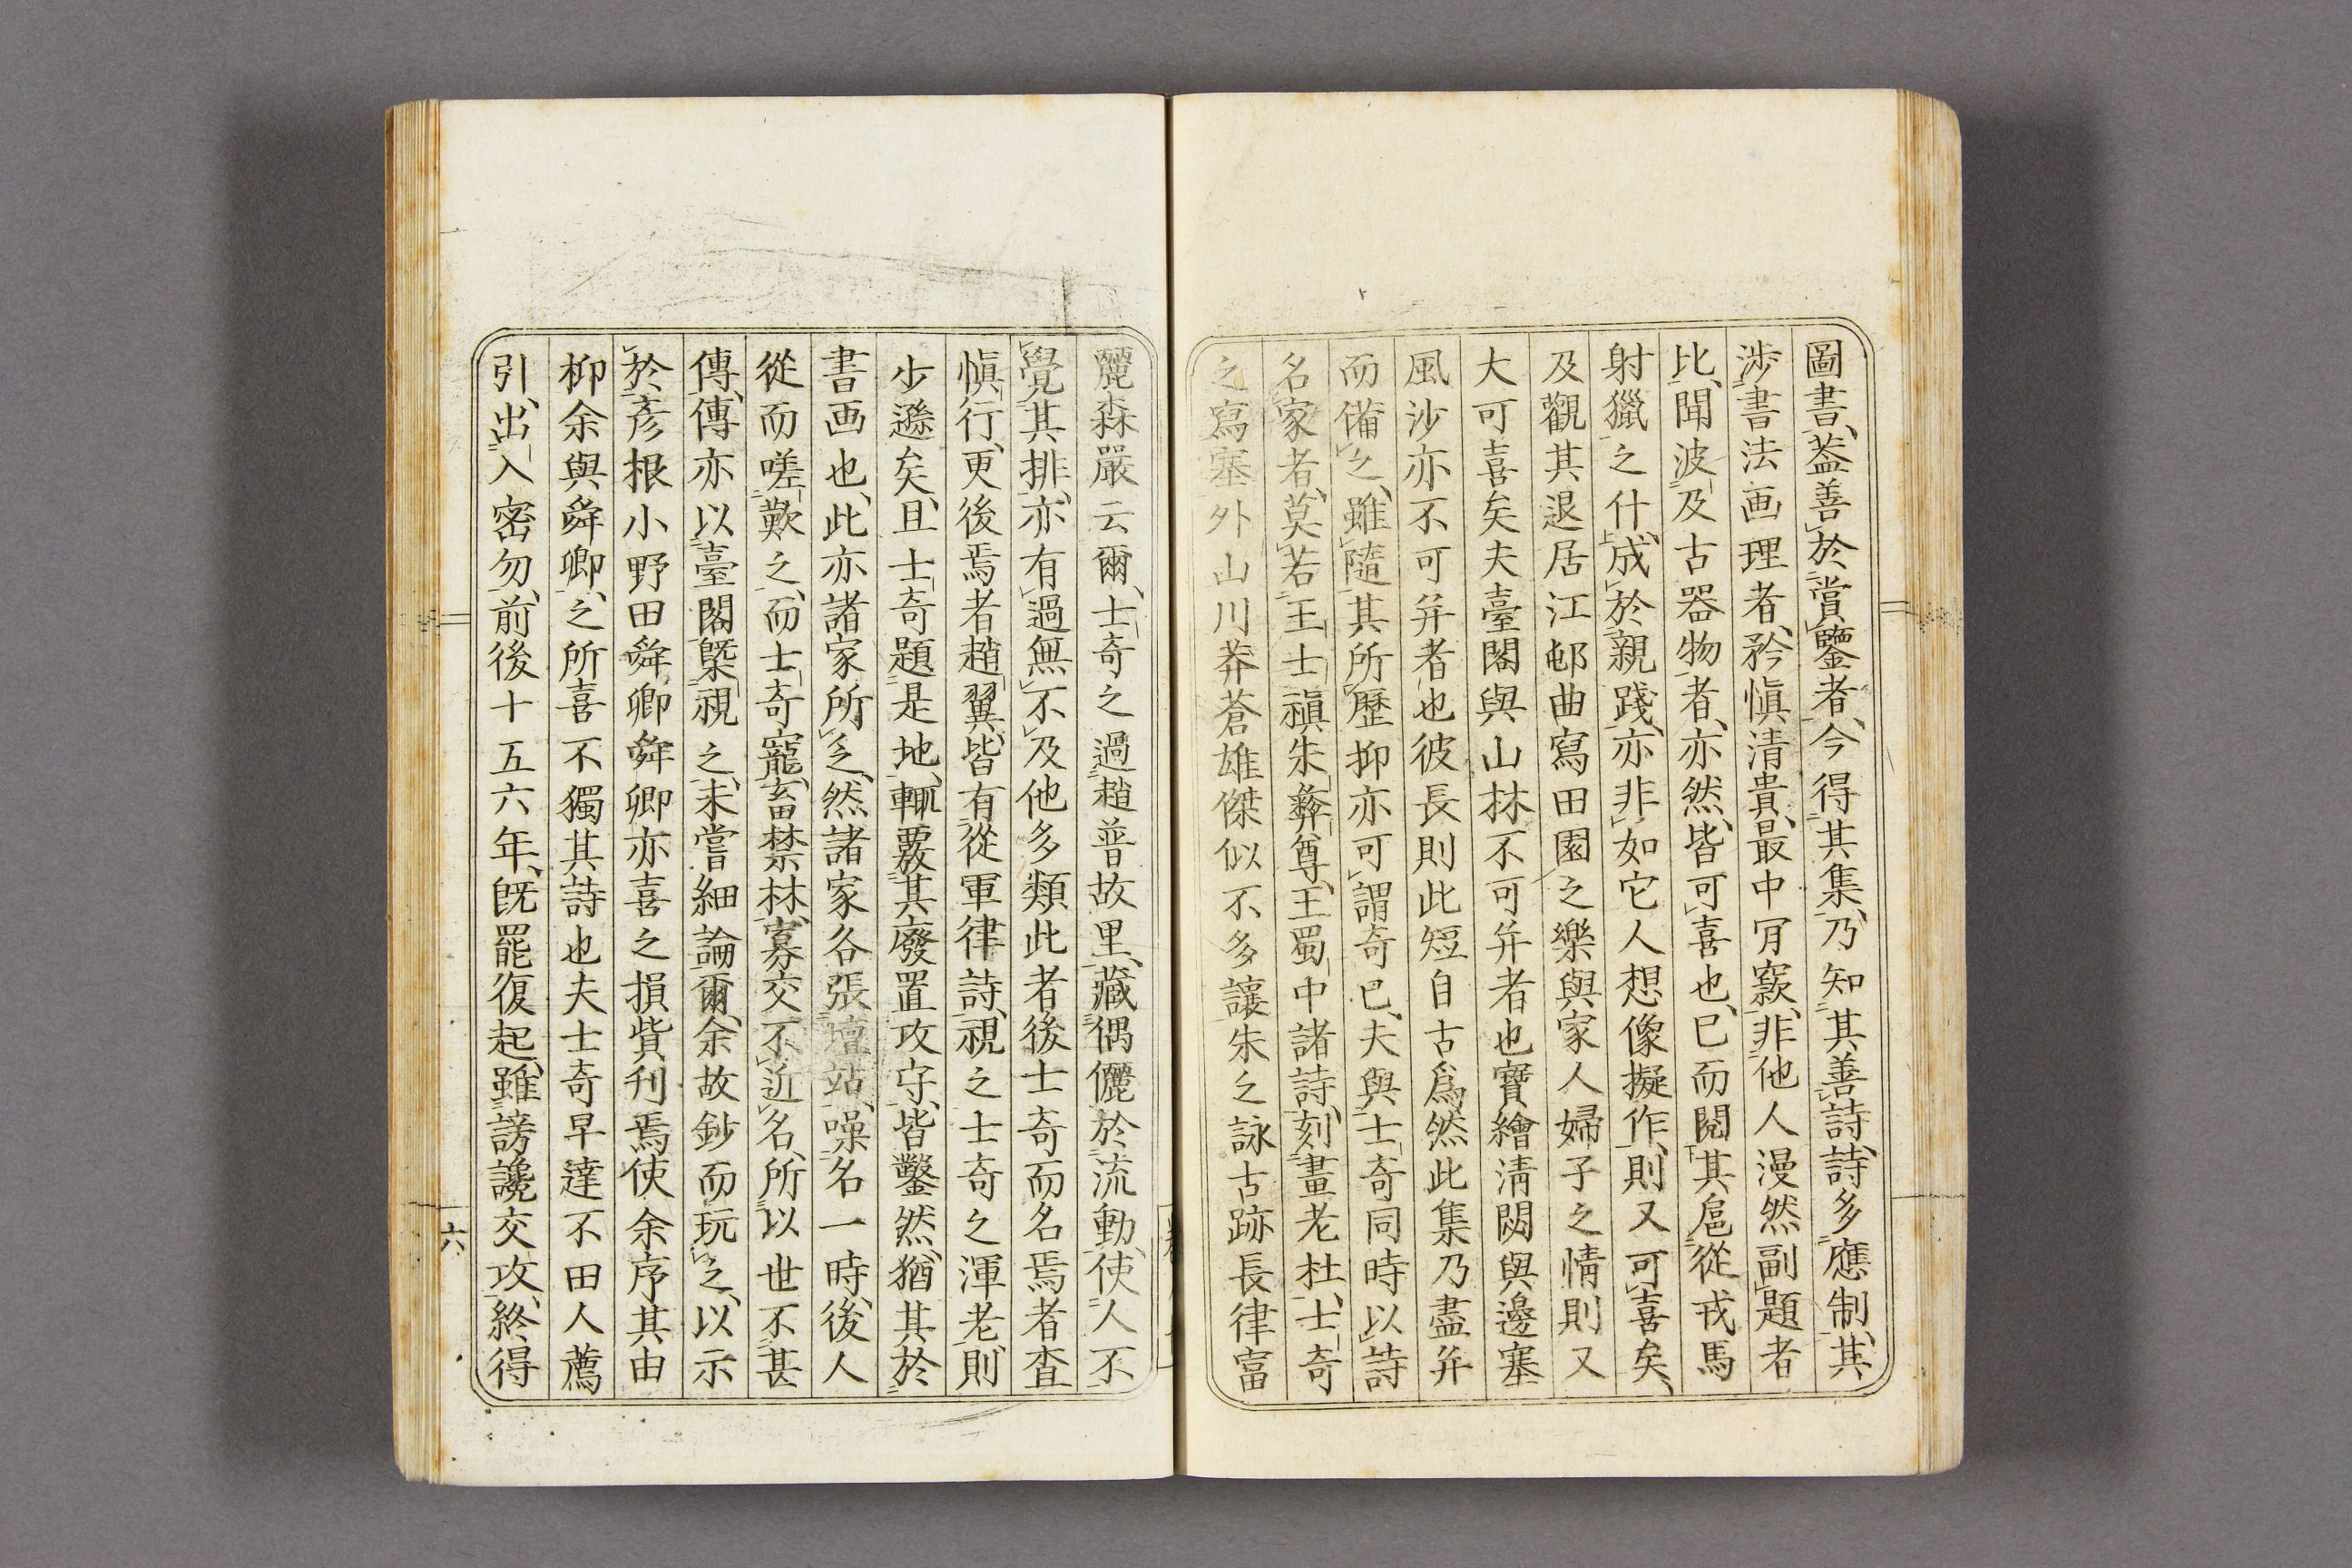 圖書、葢善於賞鑒者、今得其集、乃知其善詩、詩多應制、其
渉書法画理者、矜愼清貴、最中肎窽、非他人漫然副題者
比、聞波及古器物者、亦然、皆可喜也、已而閱其扈從戎馬
射獵之什、成於親踐、亦非如它人想像擬作、則又可喜矣、
及觀其退居江邨曲寫田園之樂與家人婦子之情則又
大可喜矣夫臺閣與山林不可并者也寶繪淸閟與邊塞
風沙亦不可并者也彼長則此短自古爲然此集乃盡并
而備之、雖隨其所歷抑亦可謂奇已、夫與士奇同時以詩
名家者、莫若王士禛朱彝尊、王蜀中諸詩、刻畫老杜、士奇
之寫塞外山川莽蒼雄傑似不多讓朱之詠古跡長律富
麗森嚴云爾、士奇之過趙普故里、藏偶儷於流動、使人不
覺其排、亦有過無不及他多類此者後士奇而名焉者査
愼行、更後焉者趙翼、皆有從軍律詩、視之士奇之渾老、則
少遜矣、且士奇題是地、輒覈其廢置攻守、皆鑿然、猶其於
書画也、此亦諸家所乏、然諸家各張壇坫、噪名一時、後人
從而嗟歎之、而士奇寵畜禁林、寡交不近名、所以世不甚
傳、傳亦以臺閣槩視之、未嘗細論爾、余故鈔而玩之、以示
於彥根小野田舜卿舜卿亦喜之損貲刊焉使余序其由
柳余與舜卿、之所喜不獨其詩也夫士奇早達不田人薦
引、出入密勿、前後十五六年、旣罷復起、雖謗讒交攻、終得
六